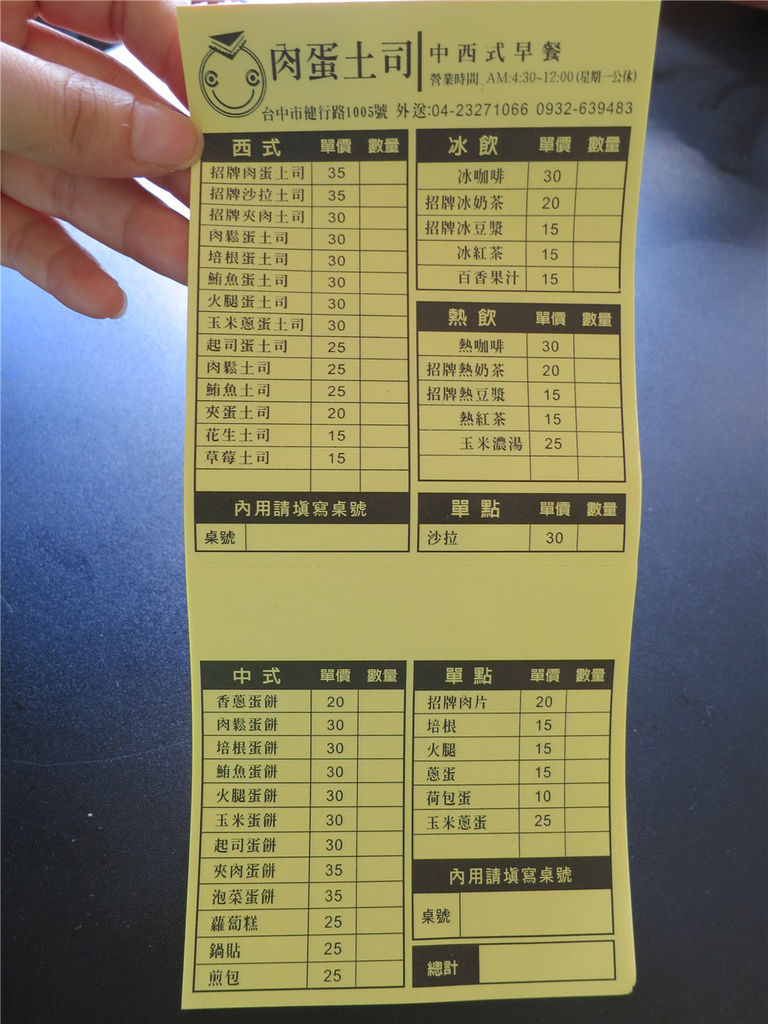 肉蛋土司 中西式早餐
營業時間 AM:4:30~12:00(星期一公休)
台中市健行路1005號 外送:04-23271066 0932-639483
西式 單價 數量
招牌肉蛋土司 35
招牌沙拉土司 35
招牌夾肉土司 30
肉鬆蛋土司 30
培根蛋土司 30
鮪魚蛋土司 30
火腿蛋土司 30
玉米蔥蛋土司 30
起司蛋土司 25
肉鬆土司 25
鮪魚土司 25
夾蛋土司 20
花生土司 15
草莓土司 15
內用請填寫桌號
桌號
冰飲 單價 數量
冰咖啡 30
招牌冰奶茶 20
招牌冰豆漿 15
冰紅茶 15
百香果汁 15
熱飲 單價 數量
熱咖啡 30
招牌熱奶茶 20
招牌熱豆漿 15
熱紅茶 15
玉米濃湯 25
單點 單價 數量
沙拉 30
中式 單價 數量
香蔥蛋餅 20
肉鬆蛋餅 30
培根蛋餅 30
鮪魚蛋餅 30
火腿蛋餅 30
玉米蛋餅 30
起司蛋餅 30
夾肉蛋餅 35
泡菜蛋餅 35
蘿蔔糕 25
鍋貼 25
煎包 25
單點 單價 數量
招牌肉片 20
培根 15
火腿 15
蔥蛋 15
荷包蛋 10
玉米蔥蛋 25
內用請填寫桌號
桌號
總計